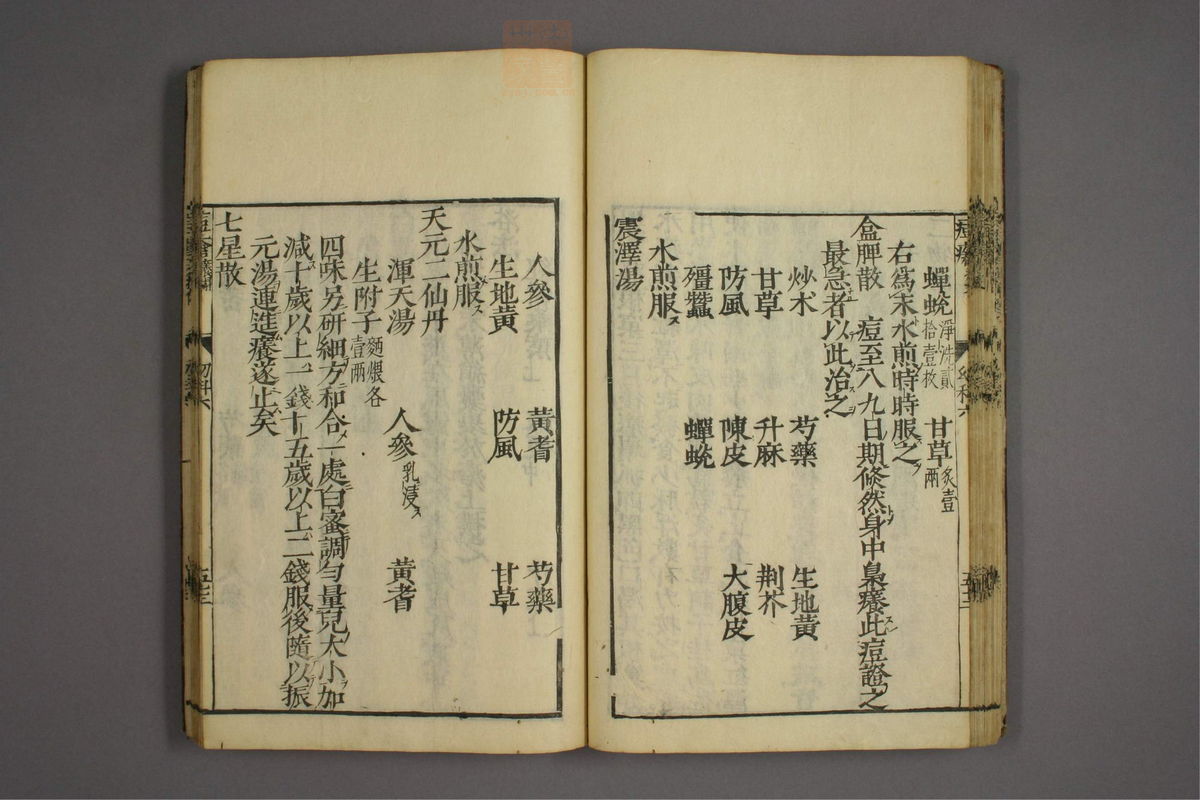 蟬蛻淨洗貳拾壹枚 甘草炙壹兩
右爲末水煎時時服之
盒脾散 痘至八九日期倏然身中裊癢此痘證之
最急者以此治之
炒朮 芍藥 生地黃
甘草 升麻 荆芥
防風 陳皮 大腹皮
殭蠶 蟬蛻
水煎服
震澤湯
人參 黃耆 芍藥
生地黃 防風 甘草
水煎服
天元二仙丹
渾天湯 人參乳浸 黃耆
生附子麵煨各壹兩
四味另研細方和合一處白蜜調勻量兒大小加
減十歲以上一錢十五歲以上二錢服後隨以振
元湯連進癢遂止矣
七星散